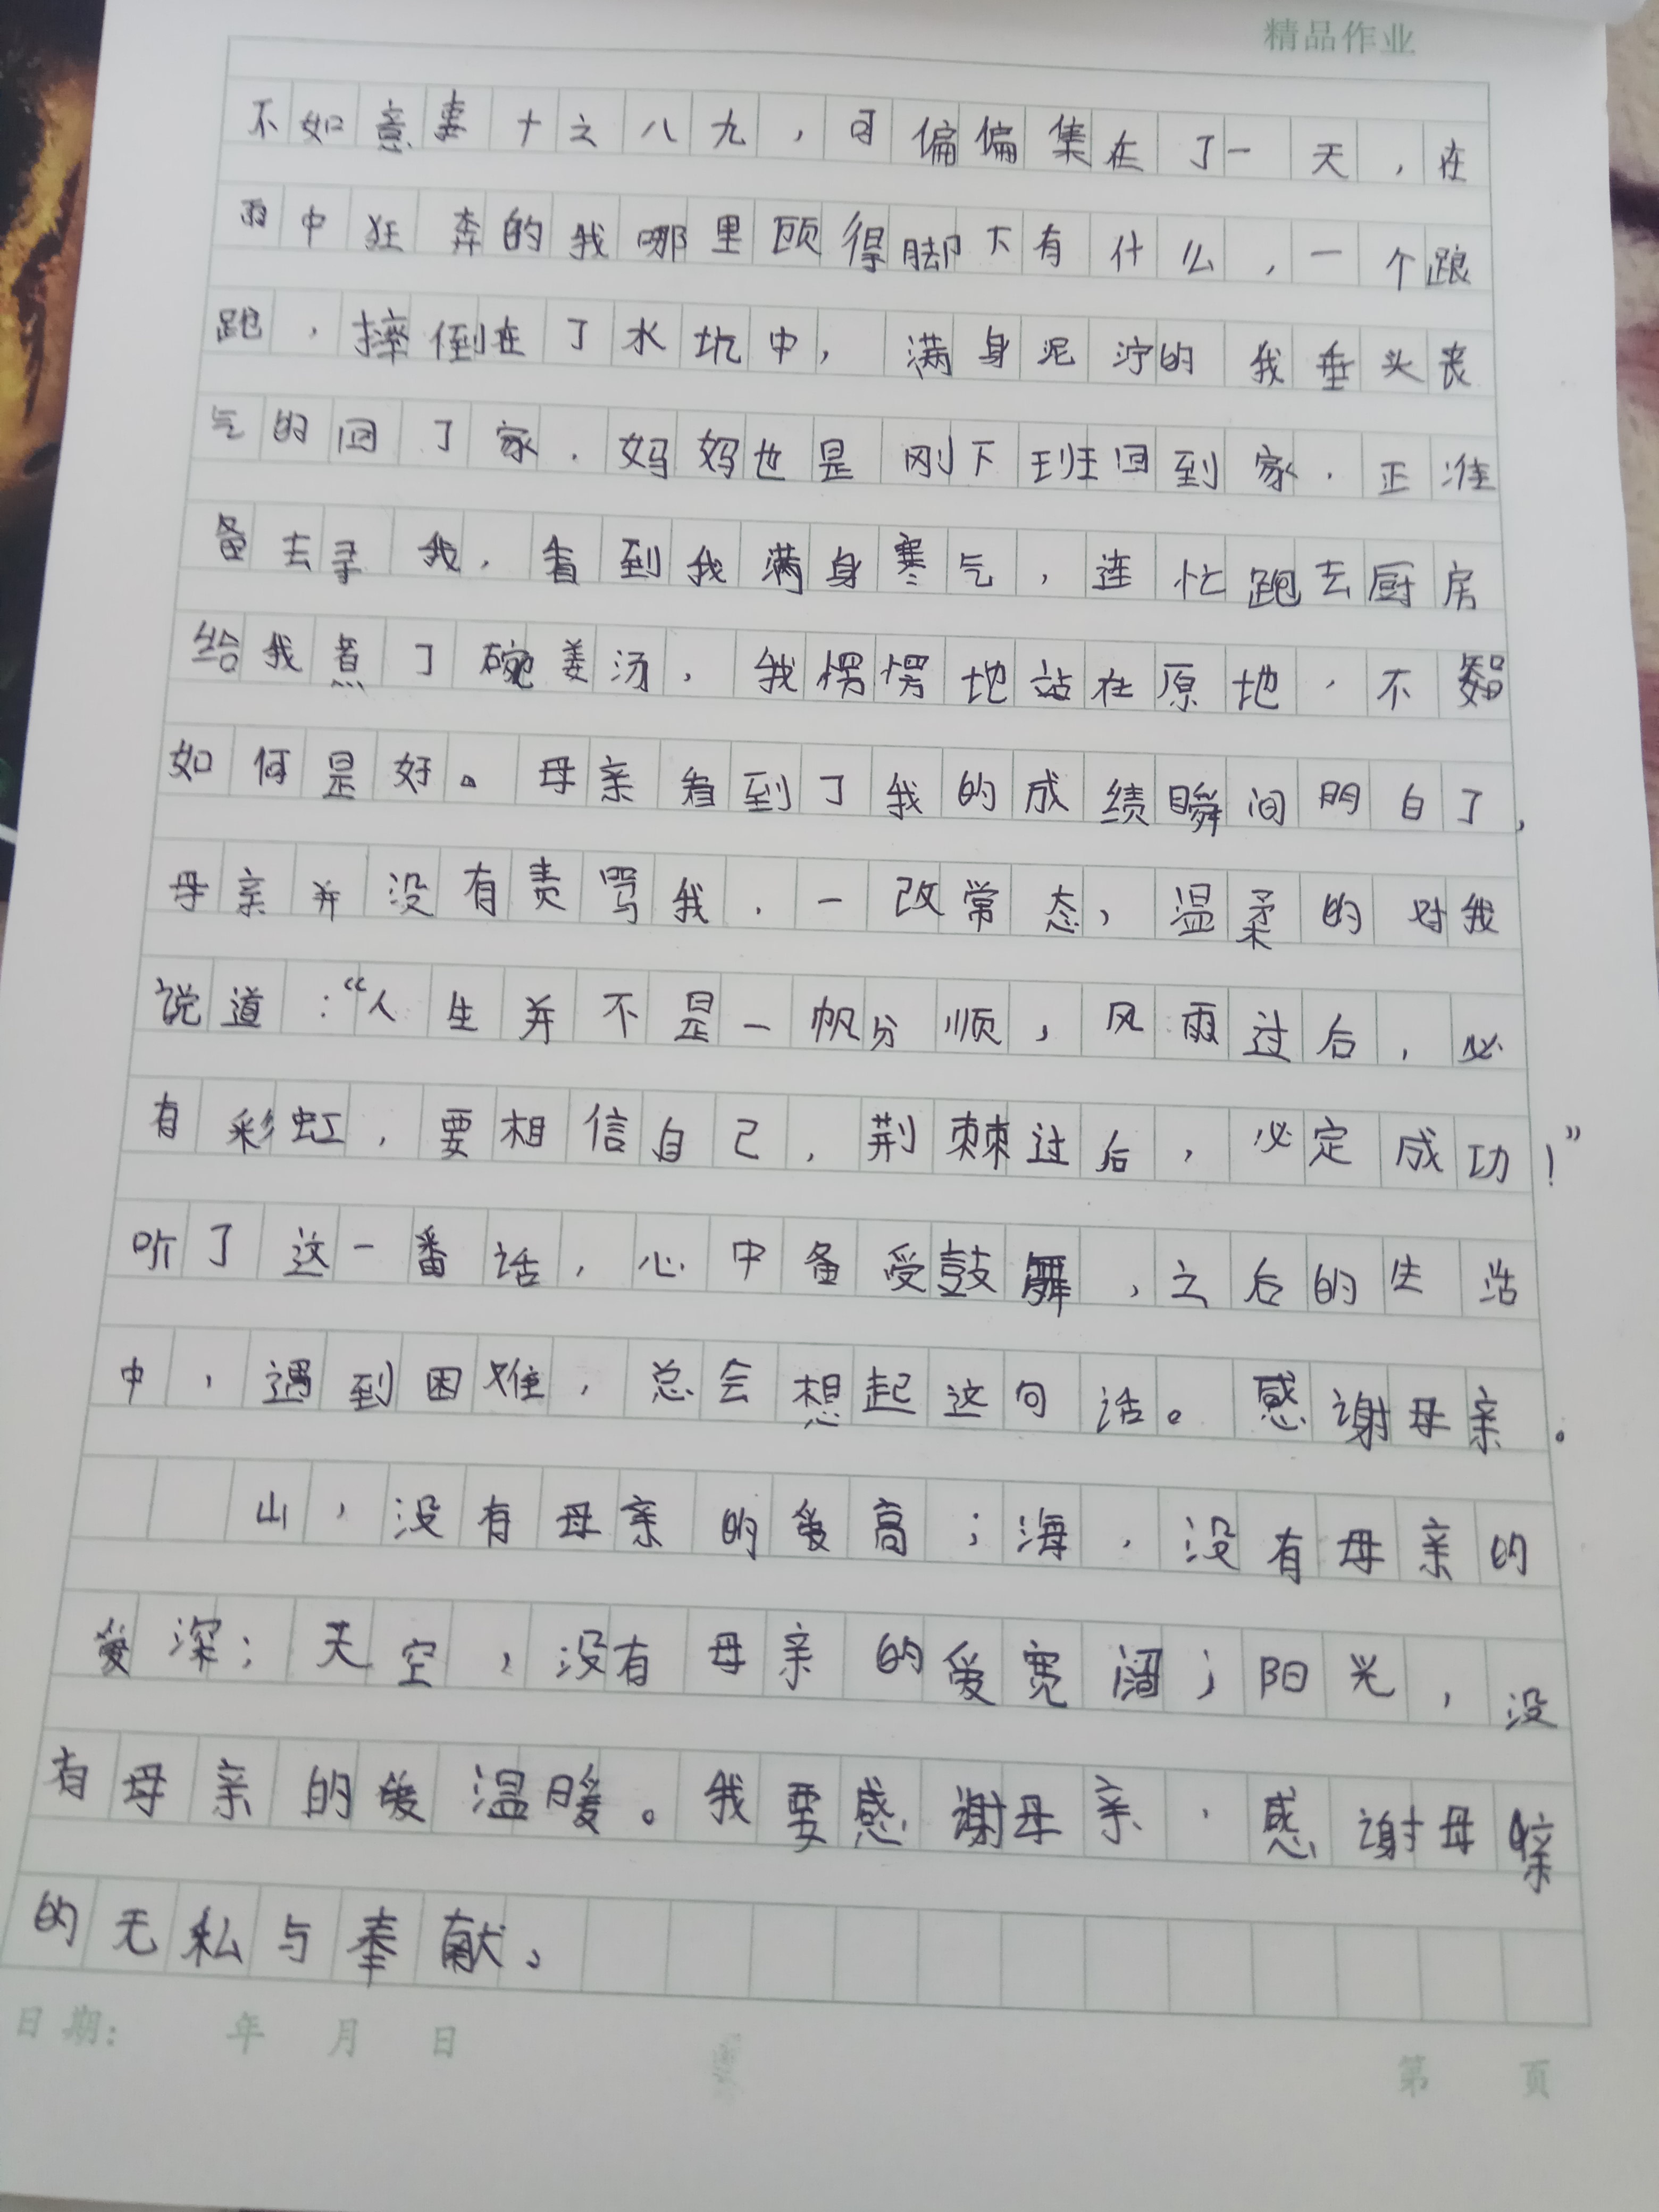 精品作业
不如意事十之八九，可偏偏集在了一天，在
雨中狂奔的我哪里顾得脚下有什么，一个踉
跄，摔倒在了水坑中，满身泥泞的我垂头丧
气的回了家．妈妈也是刚下班回到家．正准
备去寻我．看到我满身寒气，连忙跑去厨房
给我煮了碗姜汤，我愣愣地站在原地，不知
如何是好。母亲看到了我的成绩瞬间明白了，
母亲并没有责骂我．一改常态，温柔的对我
说道：“人生并不是一帆分顺，风雨过后，必
有彩虹，要相信自己，荆棘过后，必定成功！”
听了这一番话，心中备受鼓舞，之后的生活
中，遇到困难，总会想起这句话。感谢母亲。
山，没有母亲的爱高；海，没有母亲的
爱深；天空，没有母亲的爱宽阔；阳光，没
有母亲的爱温暖。我要感谢母亲．感谢母亲
的无私与奉献。
日期： 年 月 日
第 页